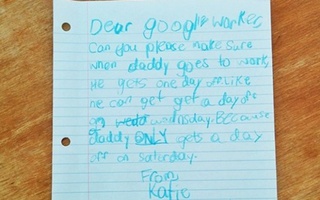 Dear google worker,
Can you please make sure
when daddy goes to work,
He gets one day off. Like
he can get get a day off
on wedo wndnsday. Because
daddy ONLY gets a day
off on saturday.
From
Katie